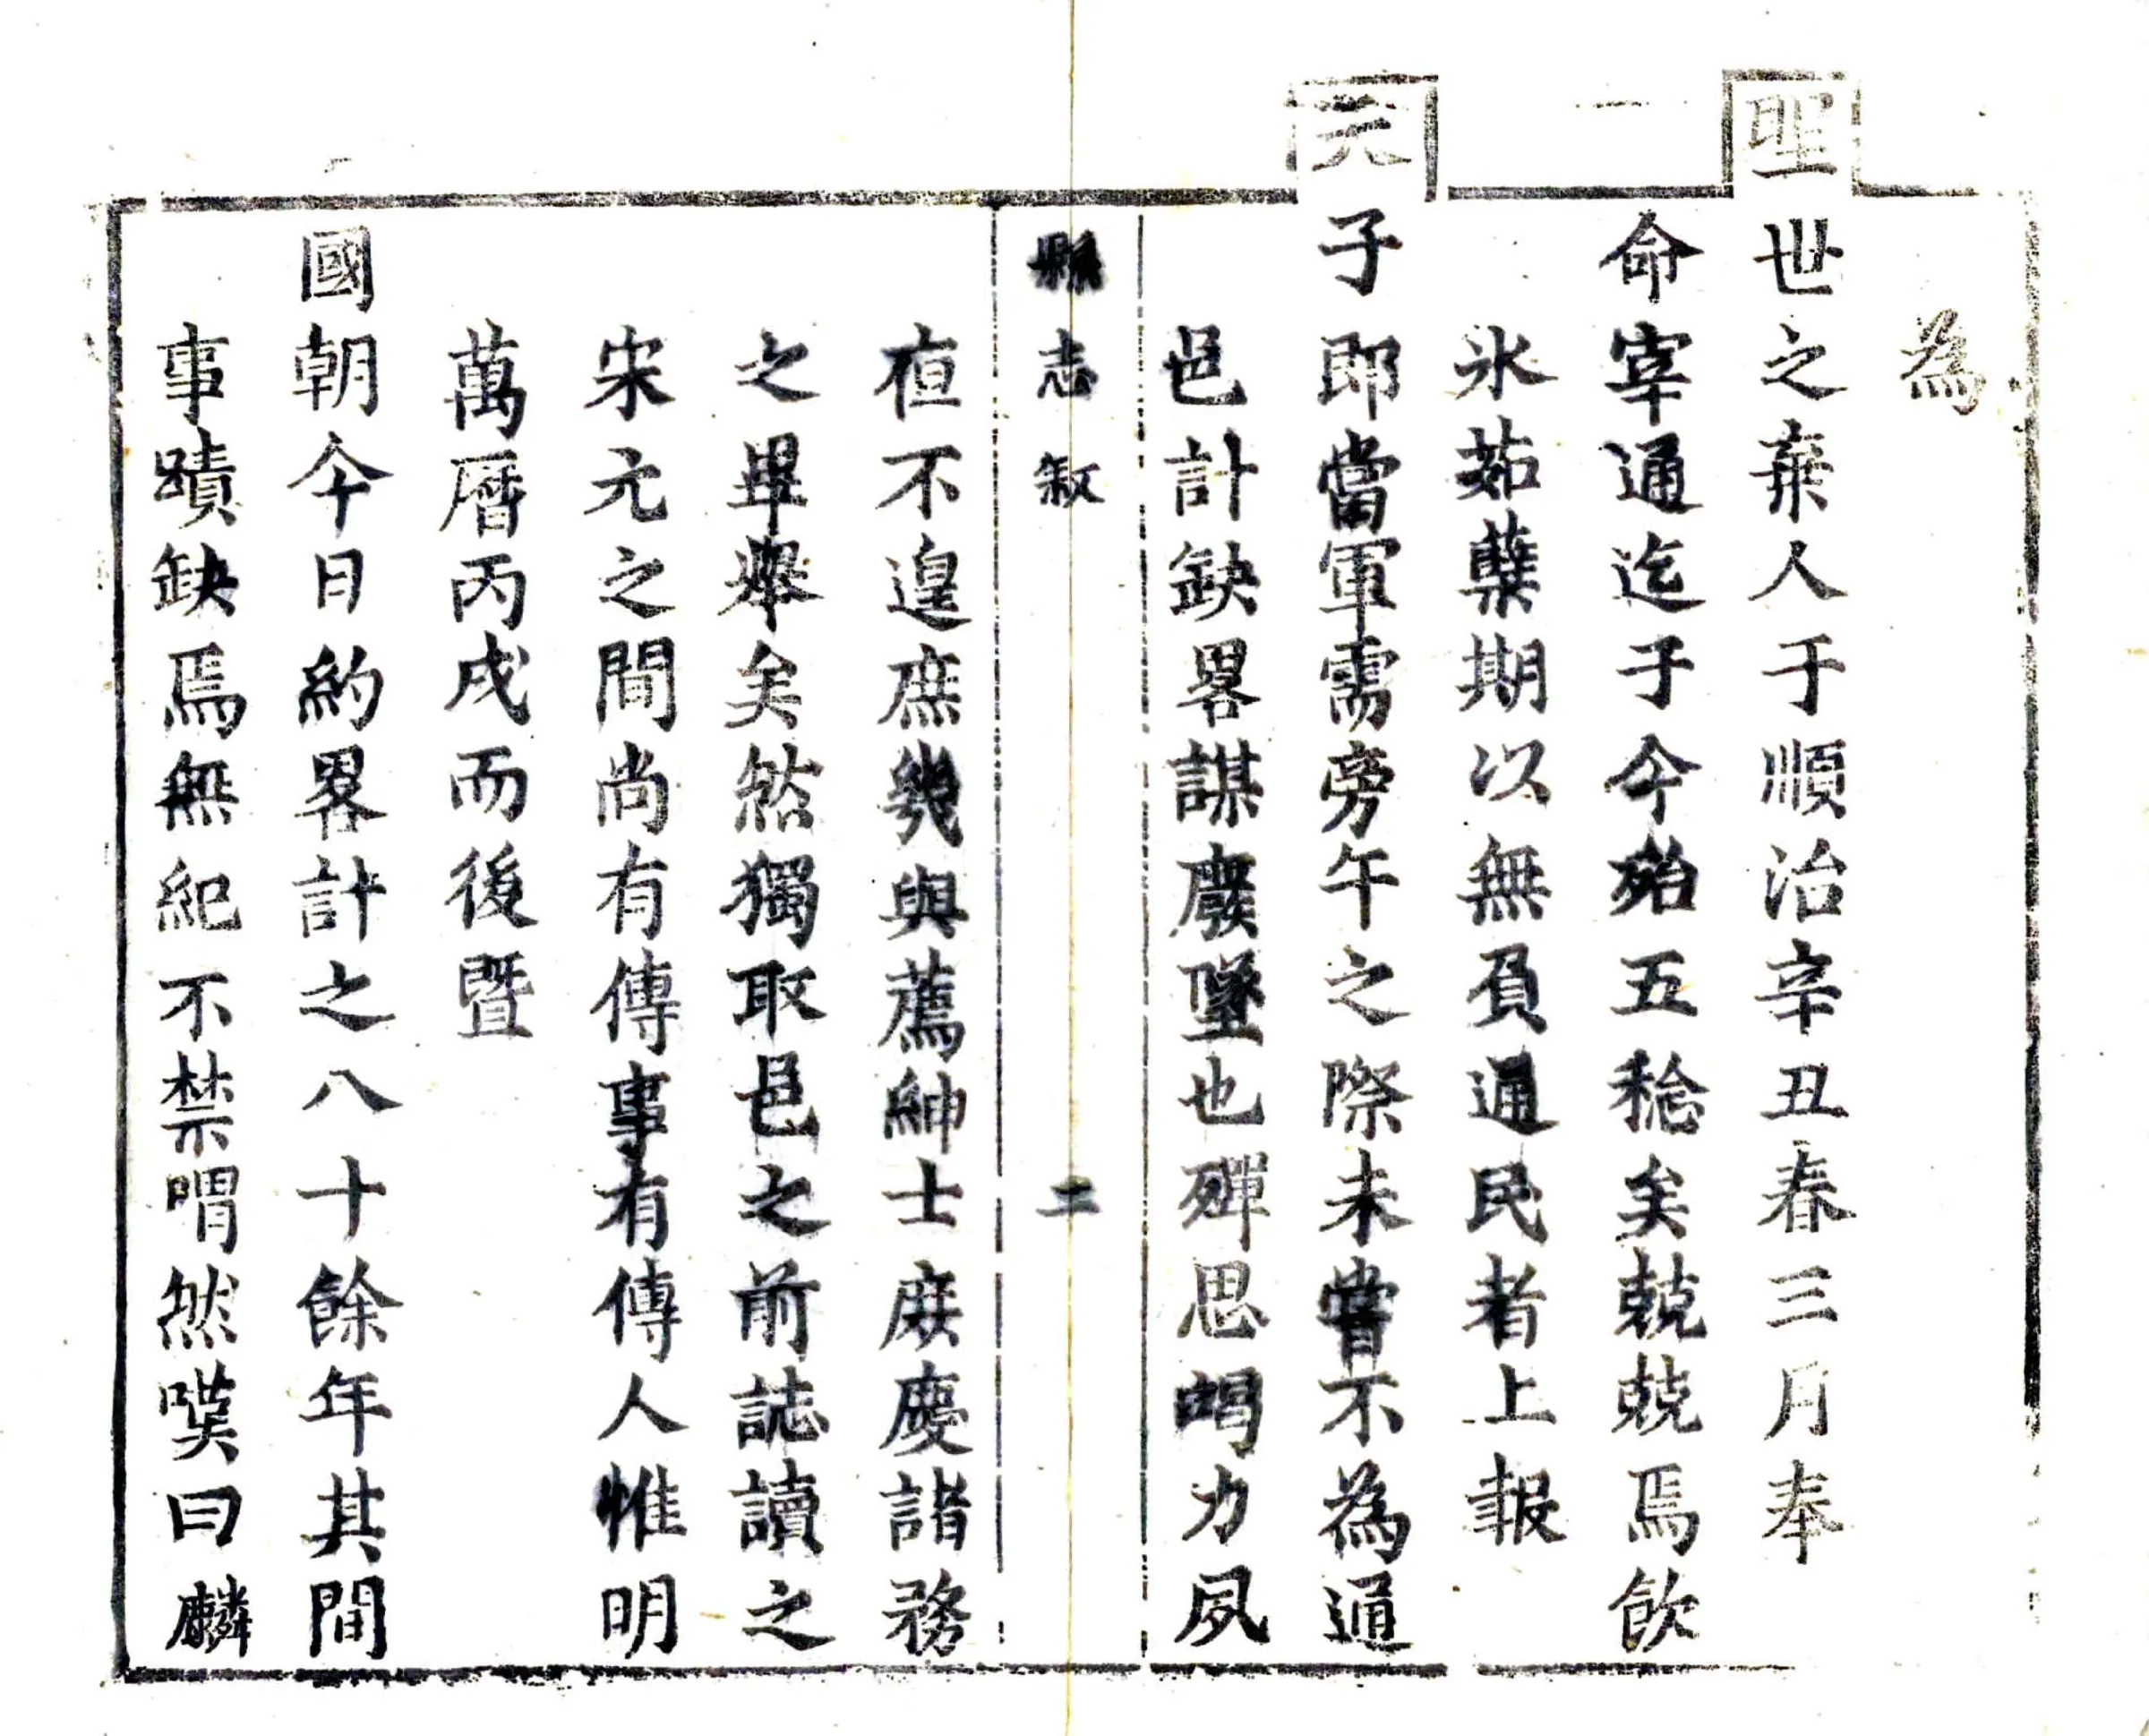 為
聖世之棄人于順治辛丑春三月奉
命宰通迄于今殆五稔矣兢兢焉飲
氷茹蘗期以無負通民者上報
天子即當軍需旁午之際未嘗不為通
邑計缺畧謀廢墜也殫思竭力夙
縣志敘 二
夜不遑庶幾與薦紳士庶慶諧務
之畢舉矣然獨取邑之前誌讀之
宋元之間尚有傳事有傳人惟明
萬曆丙戌而後暨
國朝今日約畧計之八十餘年其間
事蹟缺焉無紀不禁喟然嘆曰麟